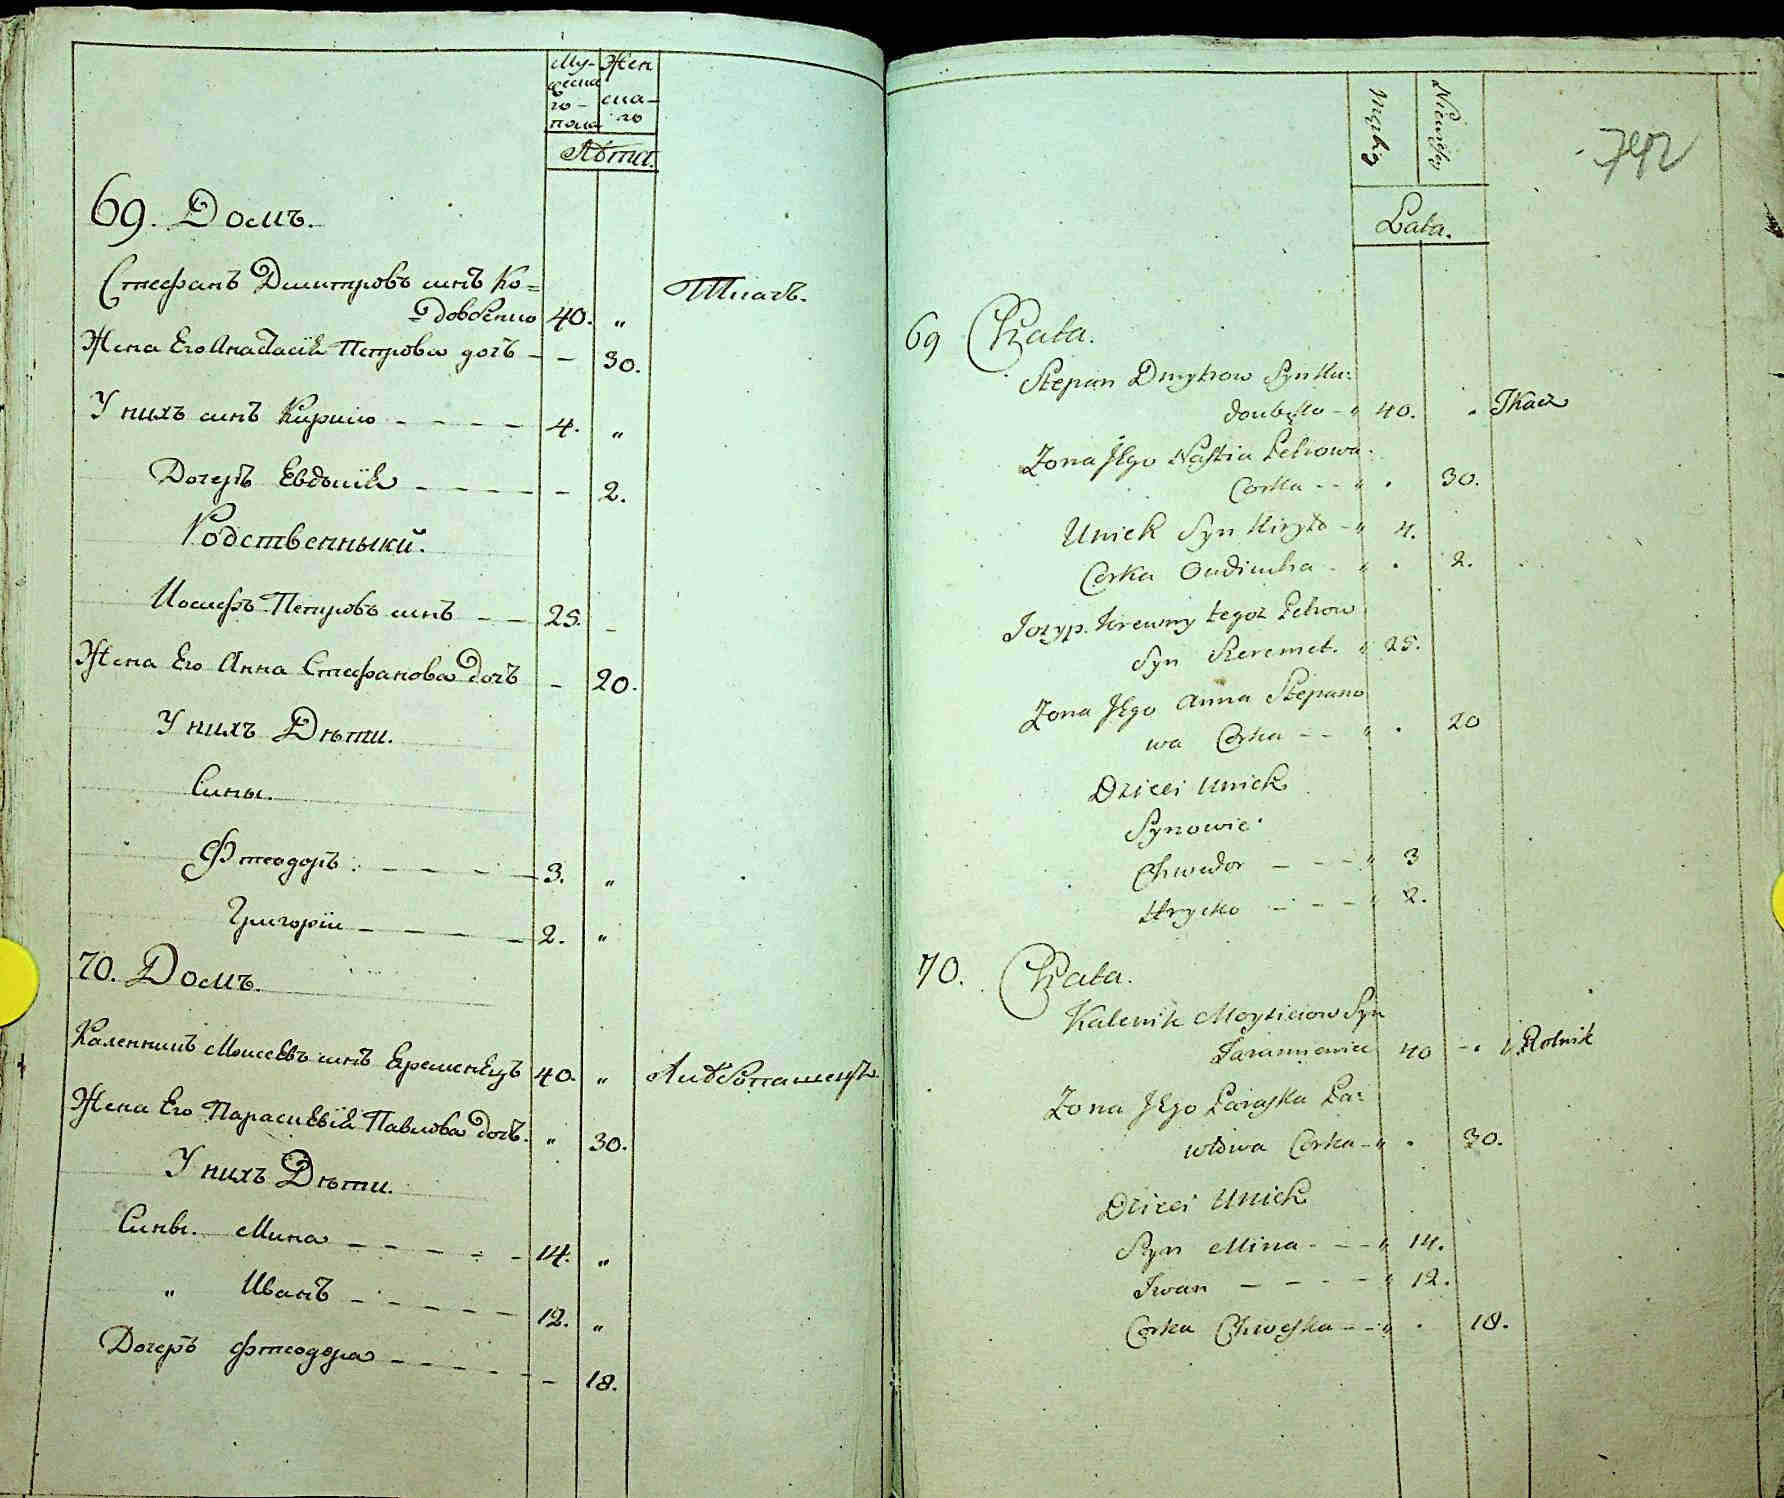 Му-
жеска
го-
пола
Жен
ска-
го
Лѣта.
69. Домъ.
Стефанъ Димитровъ синъ Ко=
Ткачъ.
40. „
Жена Его Анастасія Петрова дочъ - - 30.
У нихъ синъ Кирило - - - - 4. „
Дочеръ Евдокія - - - - - 2.
Родственныки.
Иосифъ Петровъ синъ - - 25. -
Жена Его Анна Стефанова дочъ - 20.
У нихъ Дѣти.
Сины.
Фтеодоръ - - - - - 3. „
Григорій - - - - - 2. „
70. Домъ.
Каленникъ Моисеевъ синъ Еременецъ 40. „
Жена Его Параскевія Павлова дочъ. „ 30.
У нихъ Дѣти.
Сины. Мина - - - - - 14. „
„ Иванъ - - - - - 12. „
Дочеръ Фтеодора - - - - - 18.
Męzkiey
Lata.
69 Chata.
Stepan Dmytrow Syn Ku=
40. Tkacz
Zona Jego Nastia Petrowa
Corka - - „ . 30.
Unich Syn Kiryło - „ 4.
Corka Oudiucha - „ . 2.
Jozyp Krewny tegoz Petrow
Syn Szeremet. „ 25.
Zona Jego Anna Stepano
wa Corka - - „ . 20
Dzieci Unich
Synowie
Chwedor - - - „ 3
Hrycko - - - „ 2.
70. Chata.
Kalenik Moyzieiow Syn
40 - „ Rolnik
Zona Jego Paraska Pa=
włowa Corka - „ . 30.
Dzieci Unich
Syn Mina - - - „ 14.
Iwan - - - - „ 12.
Corka Chweska - - „ . 18.